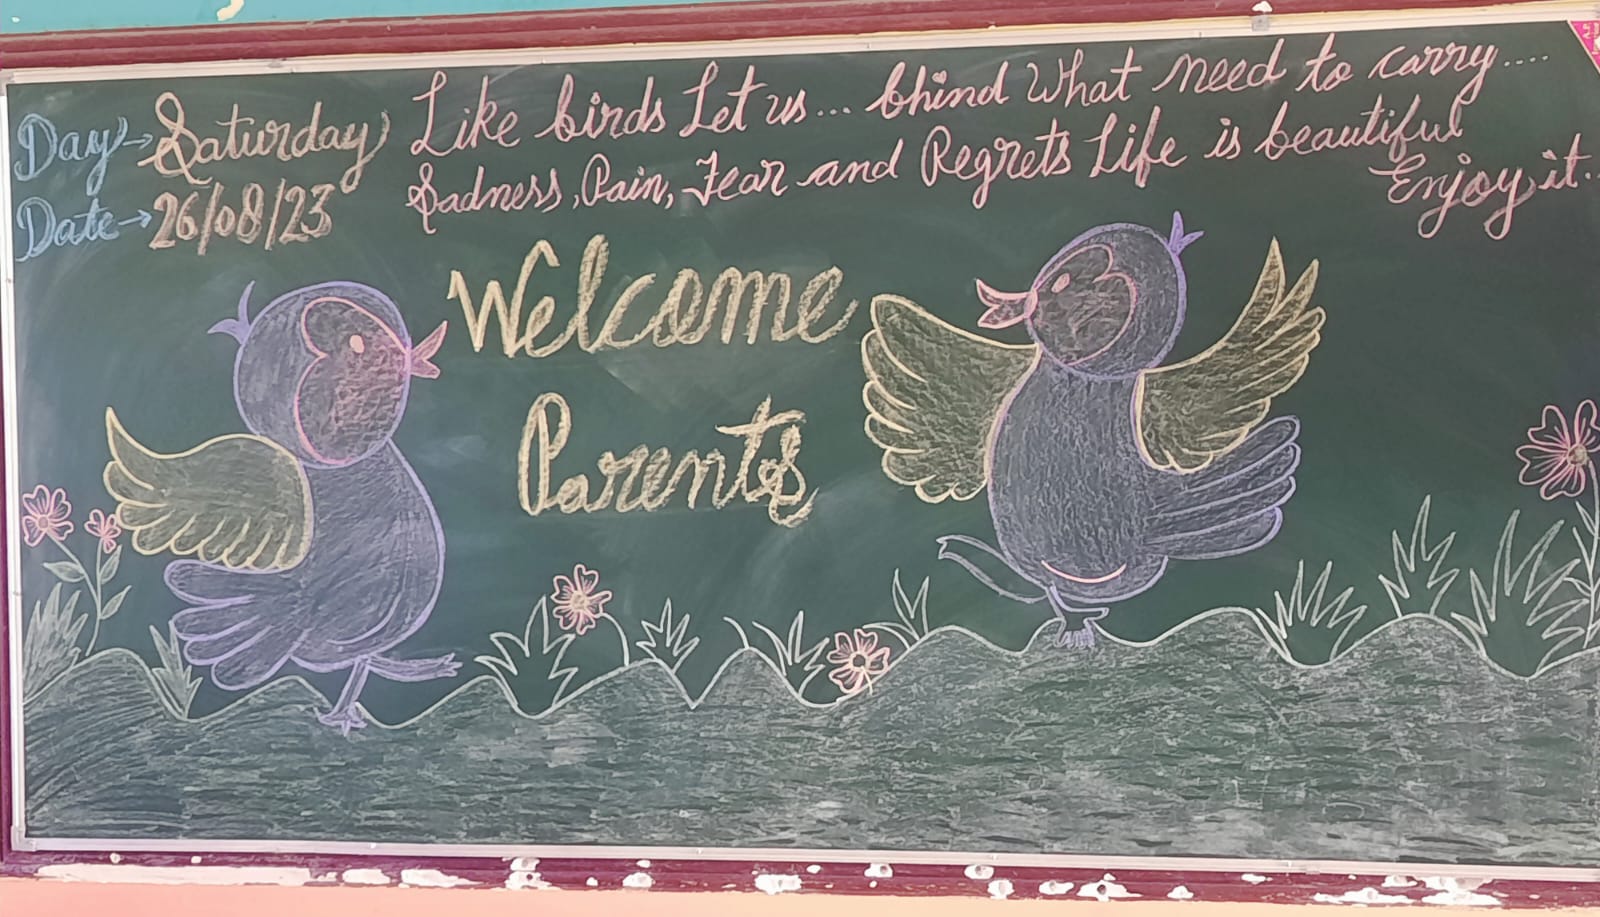 Day→Saturday
Date→26/08/23
Like birds Let us... bhind What need to carry....
Sadness, Pain, Fear and Regrets Life is beautiful
Enjoy it..
Welcome
Parents